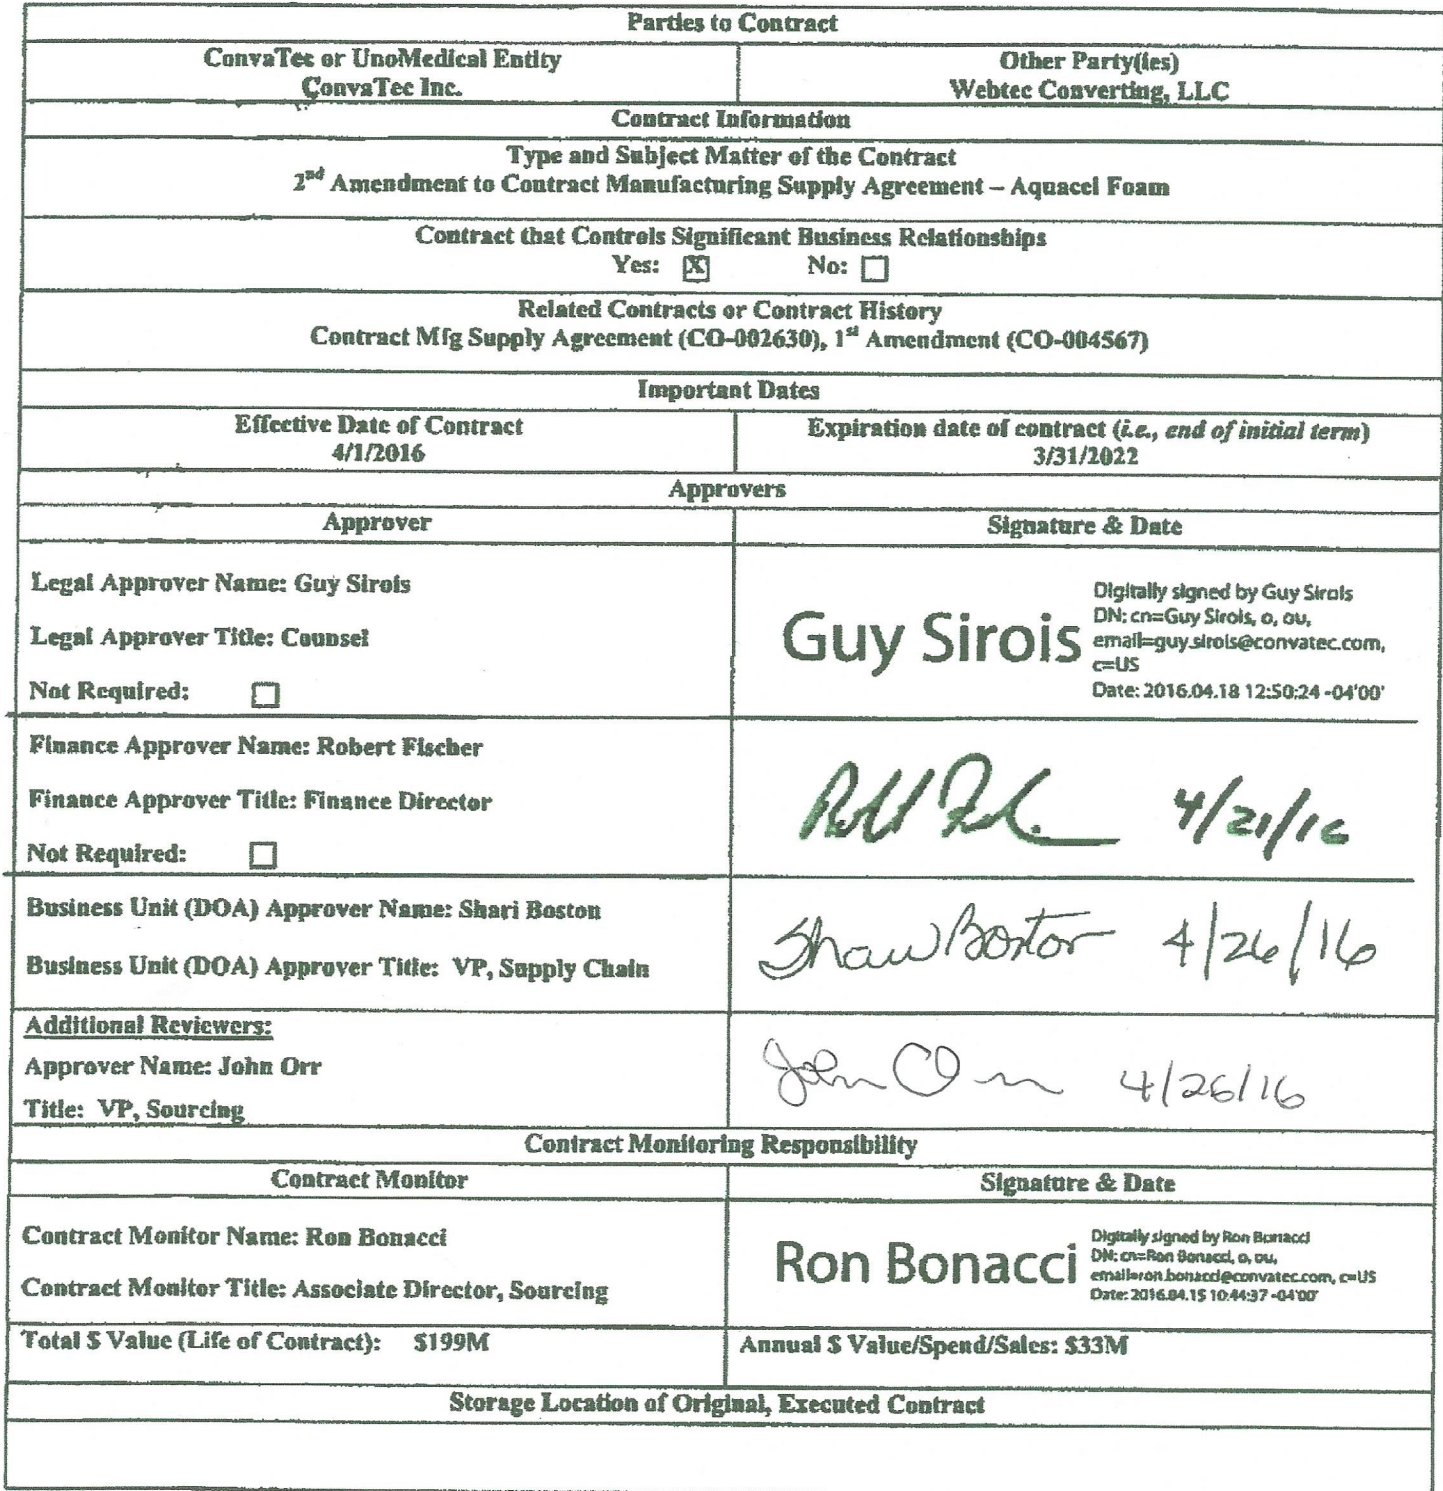 Parties to Contract
ConvaTec or UnoMedical Entity
ConvaTec Inc.
Other Party(ies)
Webtec Converting, LLC
Contract Information
Type and Subject Matter of the Contract
2nd Amendment to Contract Manufacturing Supply Agreement – Aquacel Foam
Contract that Controls Significant Business Relationships
Yes: [X] No: [ ]
Related Contracts or Contract History
Contract Mfg Supply Agreement (CO-002630), 1st Amendment (CO-004567)
Important Dates
Effective Date of Contract
4/1/2016
Expiration date of contract (i.e., end of initial term)
3/31/2022
Approvers
Approver
Signature & Date
Legal Approver Name: Guy Sirois
Legal Approver Title: Counsel
Not Required: [ ]
Guy Sirois
Digitally signed by Guy Sirois
DN: cn=Guy Sirois, o, ou,
email=guy.sirois@convatec.com,
c=US
Date: 2016.04.18 12:50:24 -04'00'
Finance Approver Name: Robert Fischer
Finance Approver Title: Finance Director
Not Required: [ ]
4/21/16
Business Unit (DOA) Approver Name: Shari Boston
Business Unit (DOA) Approver Title: VP, Supply Chain
Shari Boston 4/26/16
Additional Reviewers:
Approver Name: John Orr
Title: VP, Sourcing
John Orr 4/26/16
Contract Monitoring Responsibility
Contract Monitor
Signature & Date
Contract Monitor Name: Ron Bonacci
Contract Monitor Title: Associate Director, Sourcing
Ron Bonacci
Digitally signed by Ron Bonacci
DN: cn=Ron Bonacci, o, ou,
email=ron.bonacci@convatec.com, c=US
Date: 2016.04.15 10:44:37 -04'00'
Total $ Value (Life of Contract): $199M
Annual $ Value/Spend/Sales: $33M
Storage Location of Original, Executed Contract